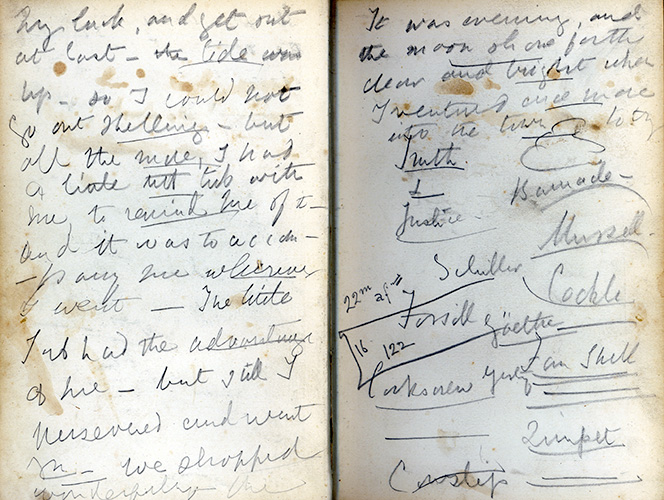 My luck, and get out
at last - the tide was
up - so I could not
go out shelling - but
all the more, I had
a little tub with
me to remind me of it -
and it was to accom -
- pany me wherever
I went - The little
Tub had the advantage
of me - but still I
persevered and went
on - we shopped
the
It was evening, and
the moon shone forth
clear and bright when
I ventured once more
into the town
Truth
&
Justice
Barnacle -
Mussel
Schiller
Cockle
22m
Göethe -
16
122
Fan Shell
Corkscrew
Limpet
Cowslip